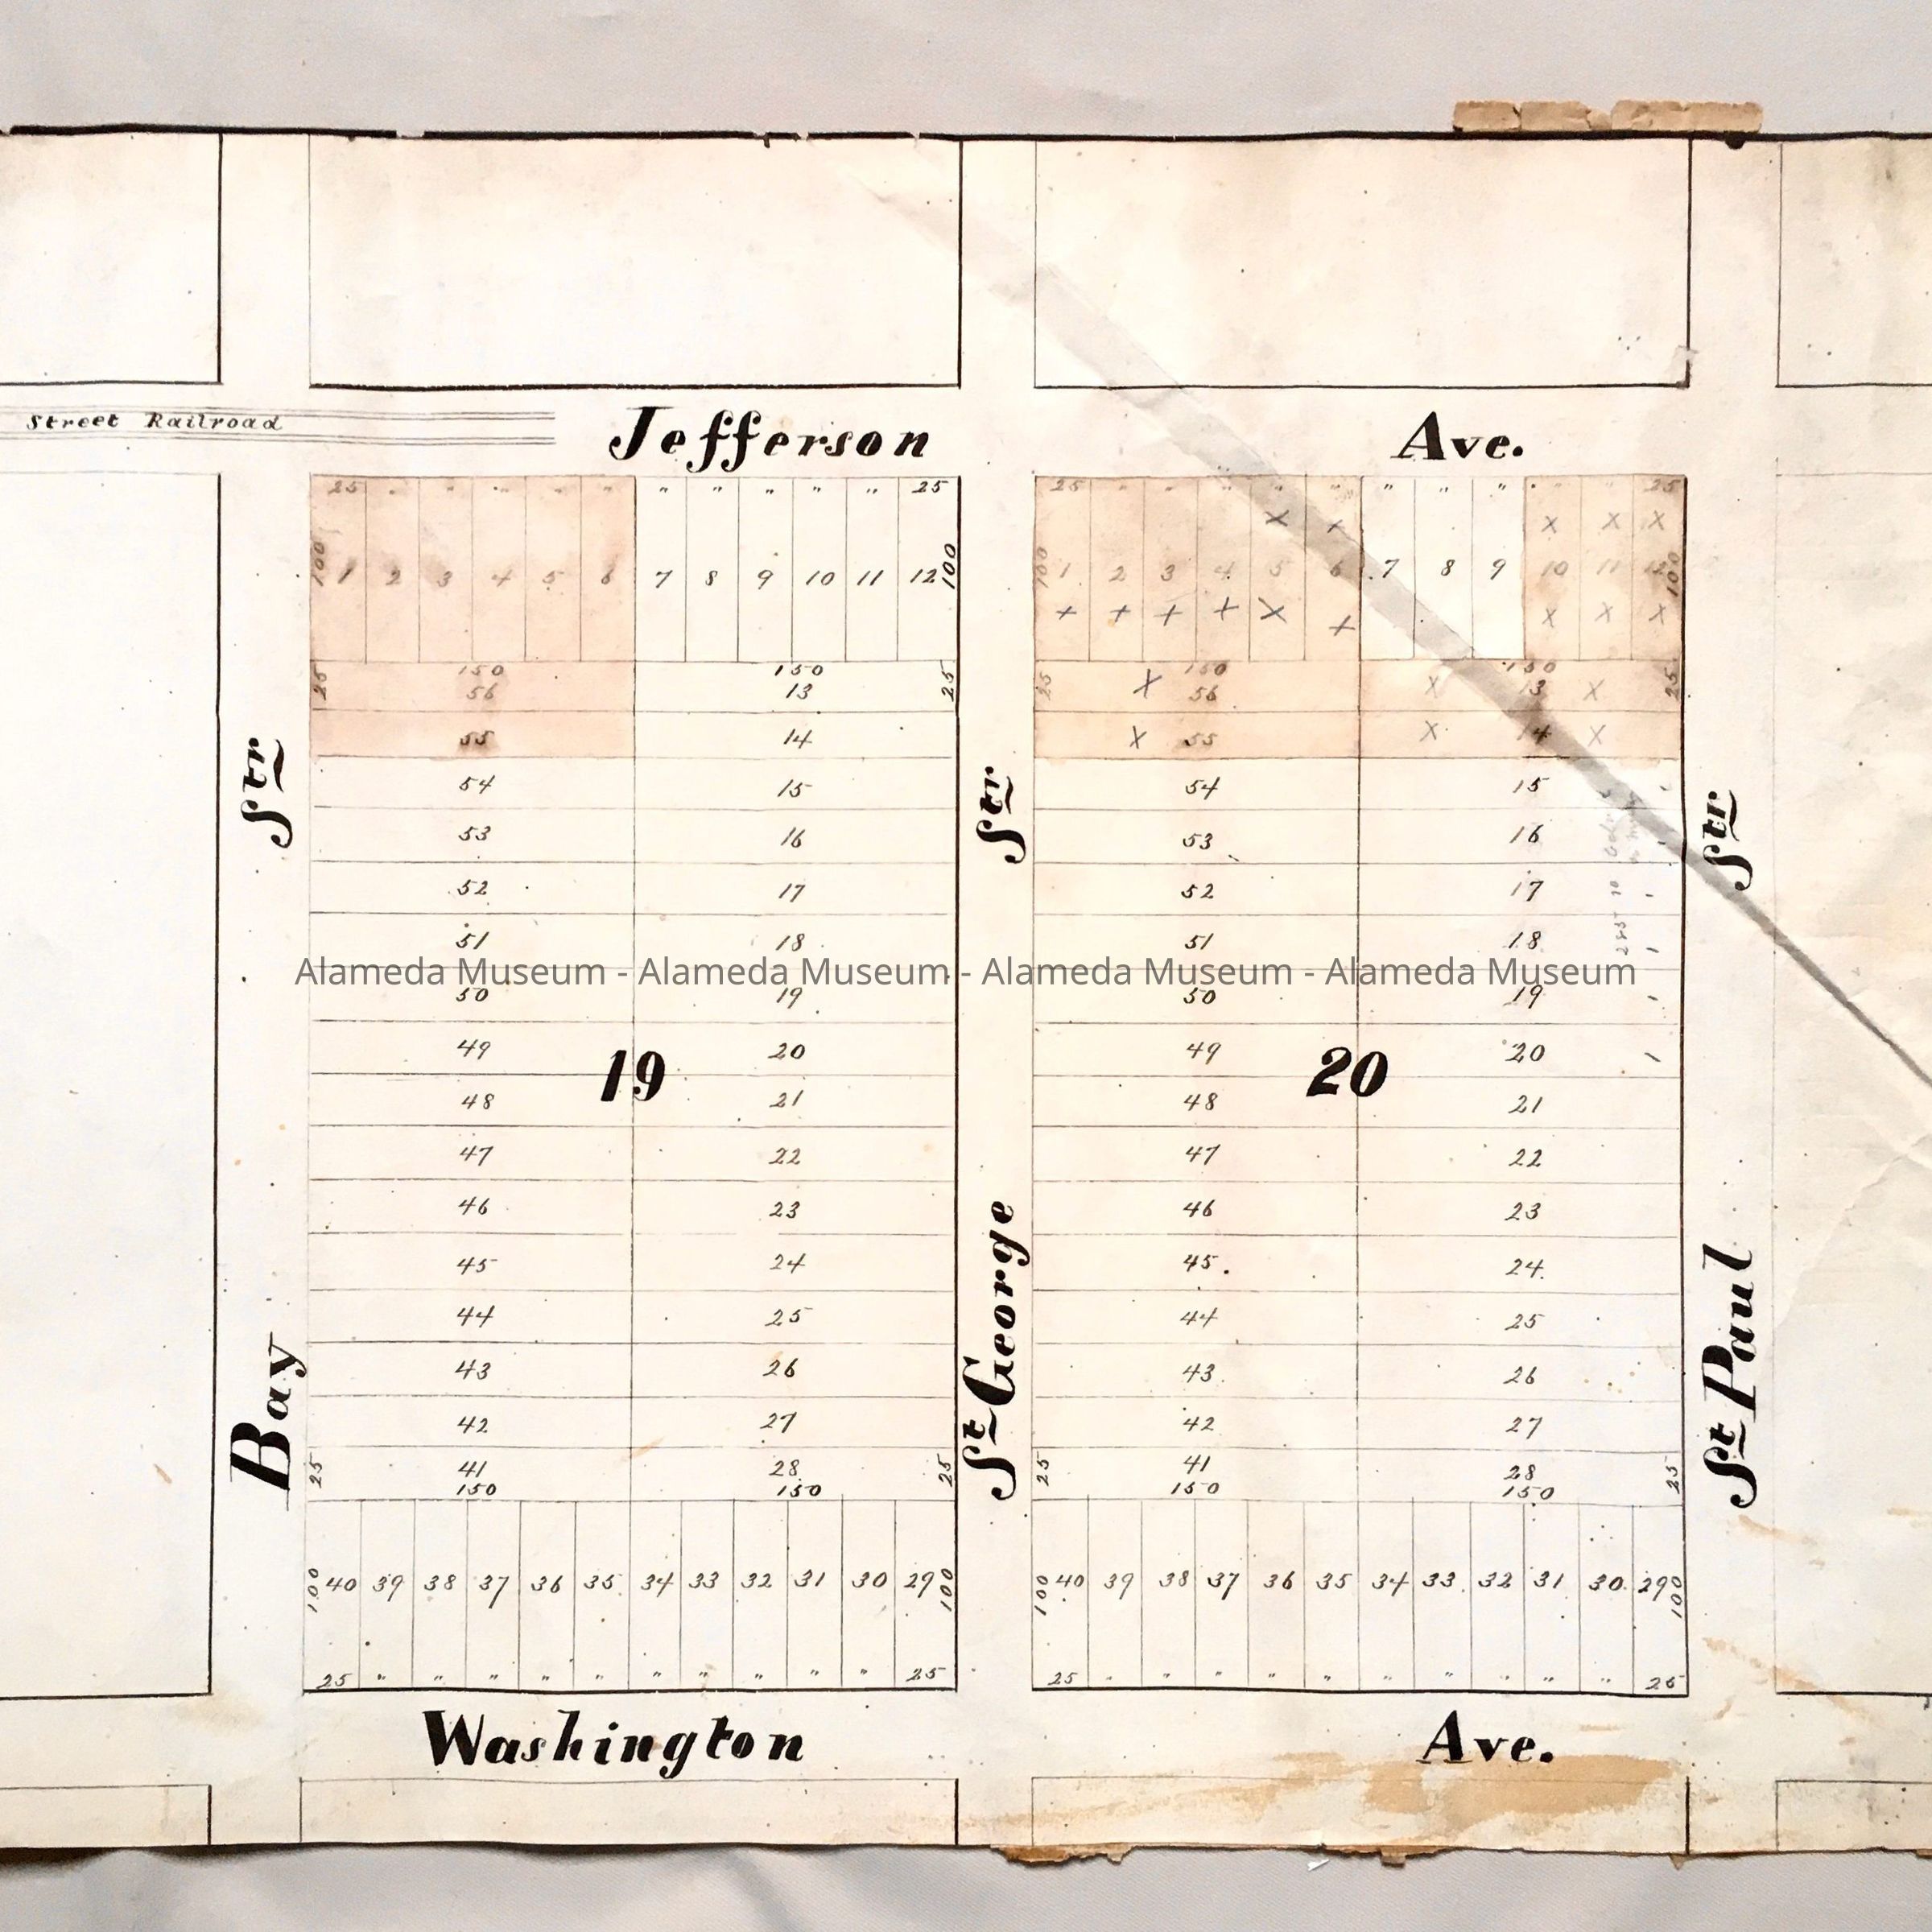 Street Railroad
Jefferson Ave.
25 " " " " " " " " " " 25
25 " " " " " " " " " " 25
100 1 2 3 4 5 6 7 8 9 10 11 12 100
100 1 2 3 4 5 6 7 8 9 10 11 12 100
150 150
25 56 13 25
55 14
54 15
53 16
52 17
51 18
50 19
49 20
48 21
47 22
46 23
45 24
44 25
43 26
42 27
25 41 28 25
150 150
100 40 39 38 37 36 35 34 33 32 31 30 29 100
25 " " " " " " " " " " 25
19
150 150
25 56 13 25
55 14
54 15
53 16
52 17
51 18
50 19
49 20
48 21
47 22
46 23
45 24
44 25
43 26
42 27
25 41 28 25
150 150
100 40 39 38 37 36 35 34 33 32 31 30 29 100
25 " " " " " " " " " " 25
20
Bay Str
St George Str
St Paul Str
Washington Ave.
Alameda Museum - Alameda Museum - Alameda Museum - Alameda Museum